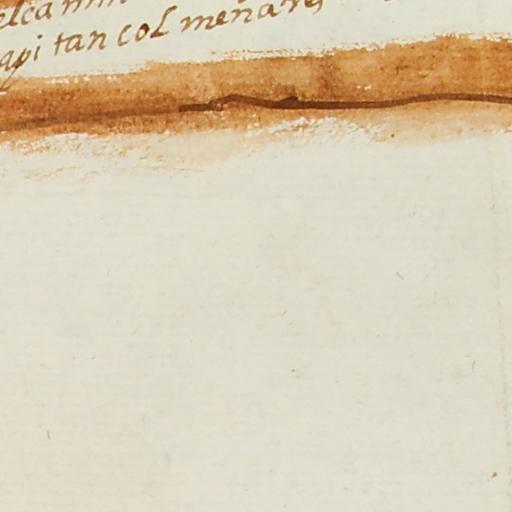 elcamin
api tan col menares